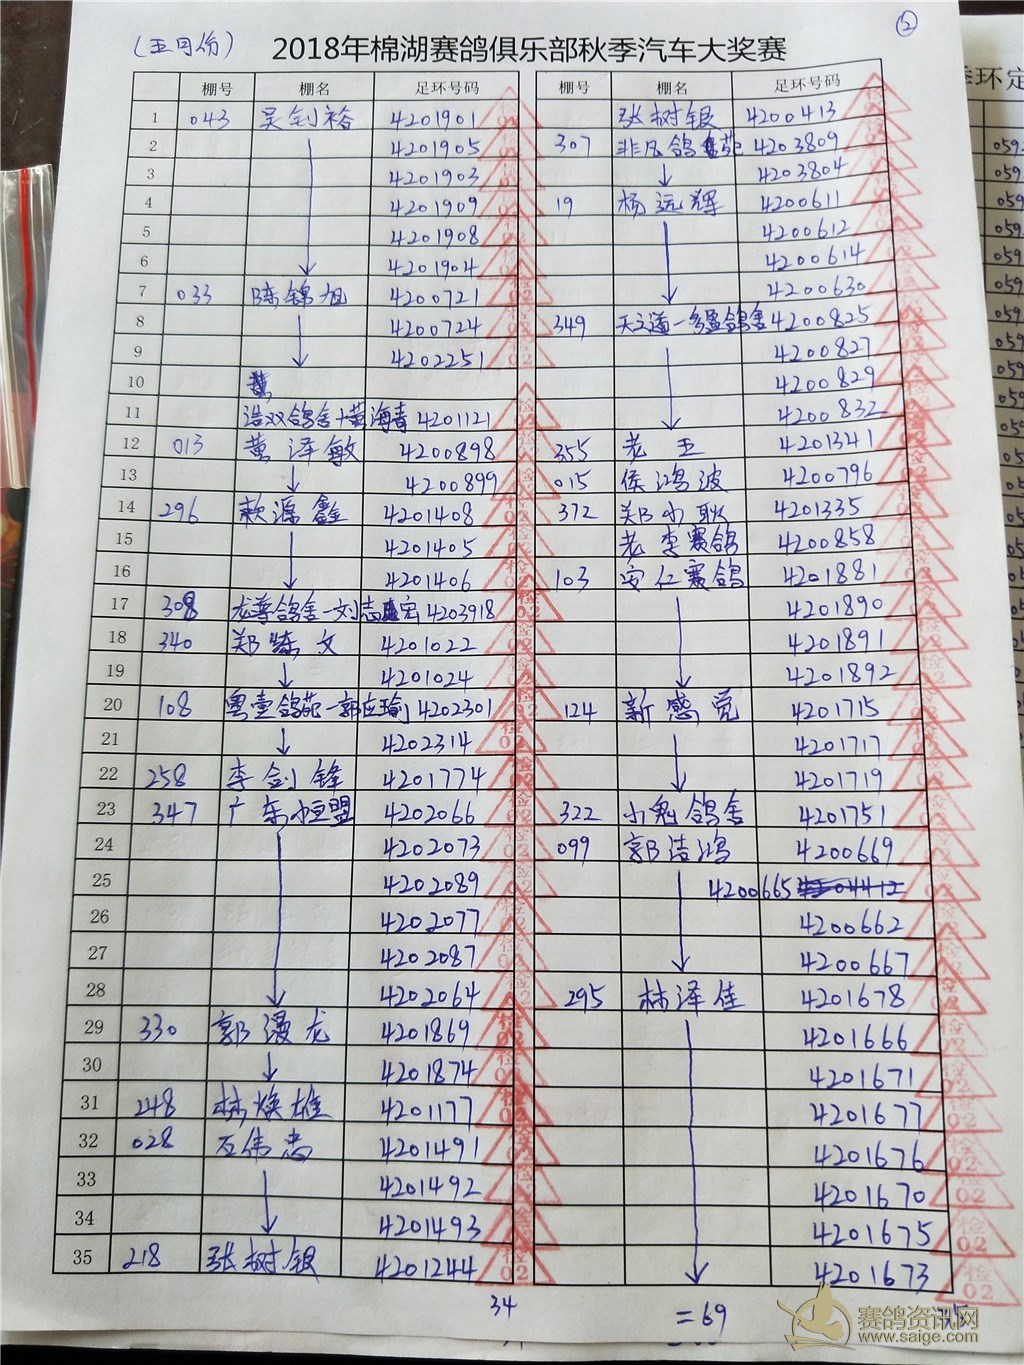 (五月份) 2018年棉湖赛鸽俱乐部秋季汽车大奖赛 ②
棚号 棚名 足环号码 棚号 棚名 足环号码
1 043 吴剑裕 4201901 张树银 4200413
2 4201905 307 非凡鸽苑 4203809
3 4201903 4203804
4 4201909 19 杨远辉 4200611
5 4201908 4200612
6 4201904 4200614
7 033 陈锦旭 4200721 4200630
8 4200724 349 天之道一多盈鸽舍 4200825
9 4202251 4200827
10 4200829
11 浩双鸽舍+黄海青 4201121 4200832
12 013 黄泽敏 4200898 355 老王 4201341
13 4200899 015 侯鸿波 4200796
14 296 源鑫 4201408 372 郑小耿 4201335
15 4201405 老李赛鸽 4200858
16 4201406 103 安仁赛鸽 4201881
17 308 龙尊鸽舍一刘志宏 4203918 4201890
18 340 郑晓文 4201022 4201891
19 4201024 4201892
20 108 粤壹鸽苑一郭应瑜 4202301 124 新感觉 4201715
21 4202314 4201717
22 258 李剑锋 4201774 4201719
23 347 广东恒盟 4202066 322 小鬼鸽舍 4201751
24 4202073 099 郭洁鸿 4200669
25 4202089 4200665
26 4202077 4200662
27 4202087 4200667
28 4202064 295 林泽佳 4201678
29 330 郭漫龙 4201869 4201666
30 4201874 4201671
31 248 林焕雄 4201177 4201677
32 028 石伟忠 4201491 4201676
33 4201492 4201670
34 4201493 4201675
35 218 张树银 4201244 4201673
34 =69 35
季环定
赛鸽资讯网
www.saige.com